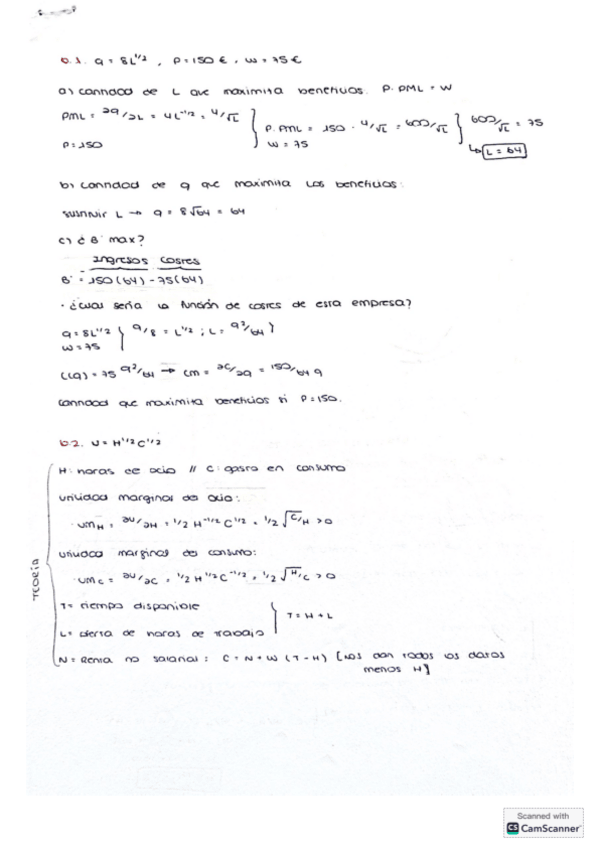 6.1. q = 8L^1/2 , P = 150 € , w = 75 €
a) cantidad de L que maximiza beneficios. P. PML = W
PML = ∂q/∂L = 4L^-1/2 = 4/√L } P. PML = 150 · 4/√L = 600/√L } 600/√L = 75
P = 150 w = 75 ↳ L = 64
b) cantidad de q que maximiza los beneficios:
sustituir L → q = 8√64 = 64
c) ¿B° max?
Ingresos costes
B° = 150(64) - 75(64)
· ¿cual sería la función de costes de esta empresa?
q = 8L^1/2 } q/8 = L^1/2 ; L = q²/64 }
w = 75
C(q) = 75 q²/64 → CM = ∂C/∂q = 150/64 q
cantidad que maximiza beneficios si P = 150.
6.2. U = H^1/2 C^1/2
TEORÍA
H: horas de ocio // C: gasto en consumo
utilidad marginal del ocio:
· UM_H = ∂U/∂H = 1/2 H^-1/2 C^1/2 = 1/2 √C/H > 0
utilidad marginal del consumo:
· UM_C = ∂U/∂C = 1/2 H^1/2 C^-1/2 = 1/2 √H/C > 0
T = tiempo disponible } T = H + L
L = oferta de horas de trabajo
N = Renta no salarial : C = N + W (T - H) [Nos dan todos los datos
menos H]
Scanned with
CS CamScanner